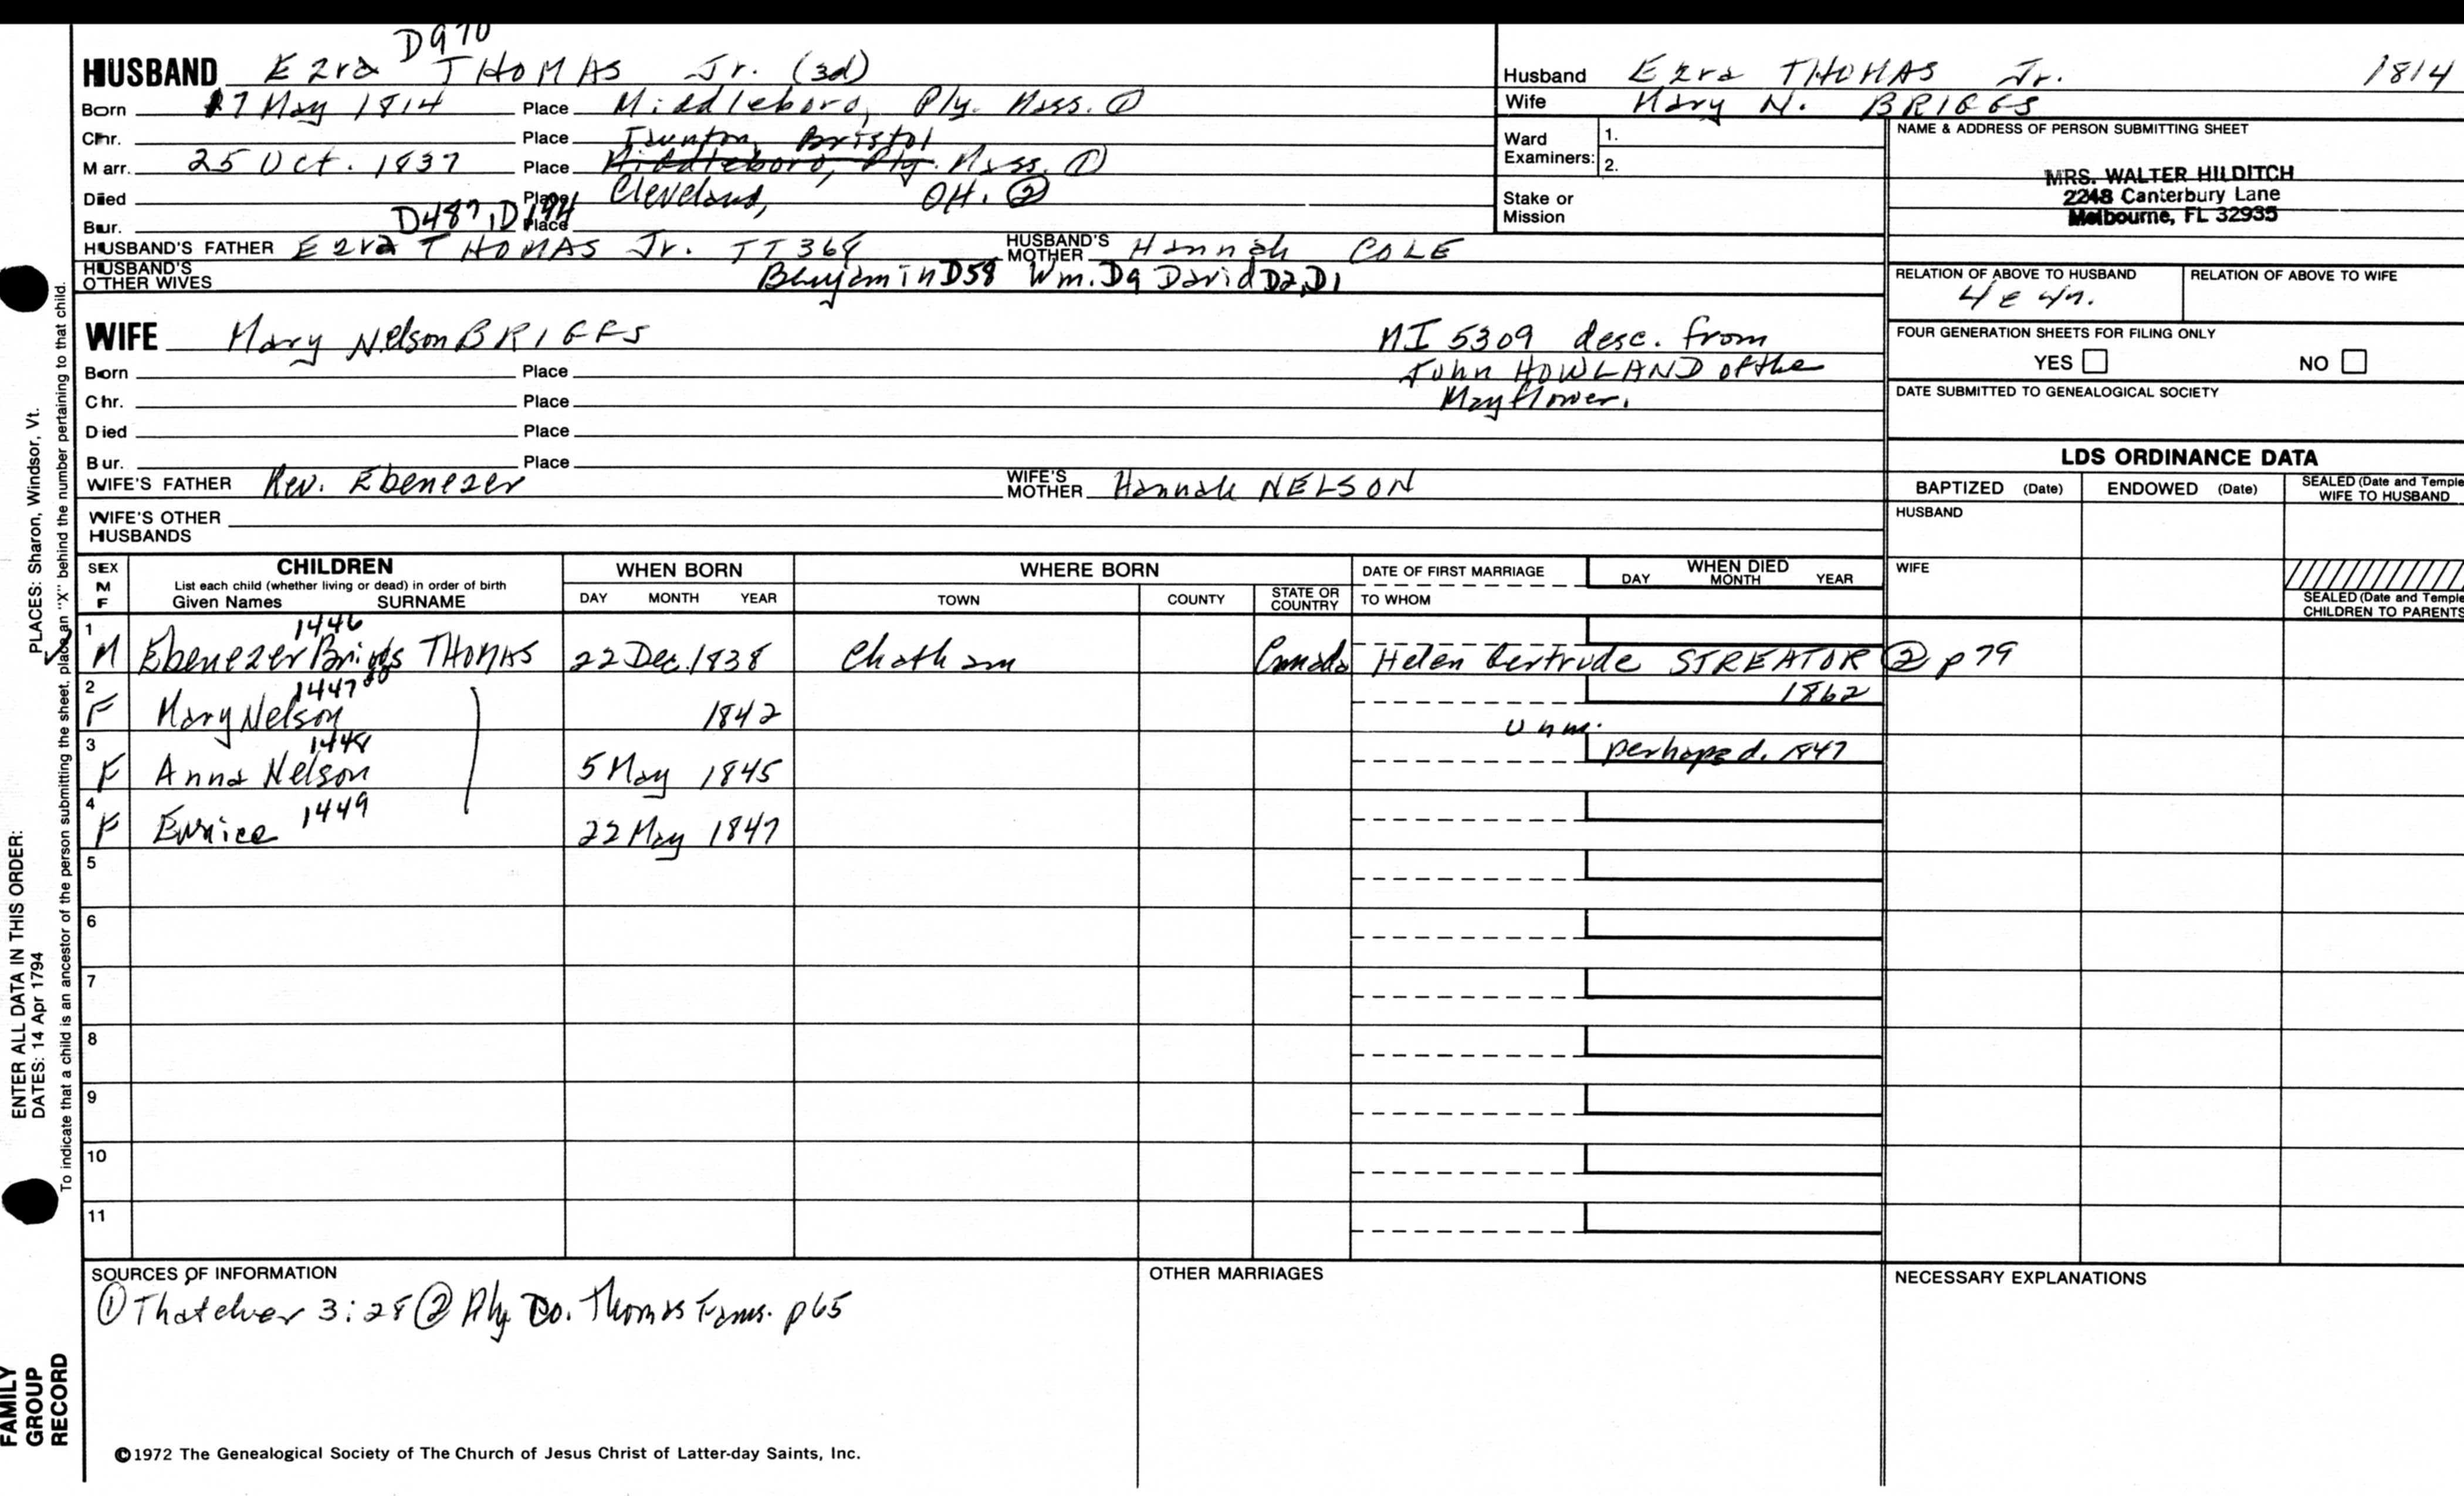 D970
HUSBAND Ezra THOMAS Jr. (3d)
Born 17 May 1814 Place Middleboro, Ply. Mass. ①
Chr. Place Taunton, Bristol
Marr. 25 Oct. 1837 Place Middleboro, Ply. Mass. ①
Died Place Cleveland, OH. ②
Bur. D487, D194 Place
HUSBAND'S FATHER Ezra THOMAS Jr. TT368 HUSBAND'S MOTHER Hannah COLE
HUSBAND'S OTHER WIVES Benjamin D58 Wm. D9 David D2, D1
Husband Ezra THOMAS Jr. 1814
Wife Mary N. BRIGGS
Ward Examiners: 1.
2.
Stake or Mission
NAME & ADDRESS OF PERSON SUBMITTING SHEET
MRS. WALTER HILDITCH
2248 Canterbury Lane
Melbourne, FL 32935
RELATION OF ABOVE TO HUSBAND RELATION OF ABOVE TO WIFE
FOUR GENERATION SHEETS FOR FILING ONLY
YES NO
DATE SUBMITTED TO GENEALOGICAL SOCIETY
WIFE Mary Nelson BRIGGS
MI 5309 desc. from
John HOWLAND of the
Mayflower.
Born Place
Chr. Place
Died Place
Bur. Place
WIFE'S FATHER Rev. Ebenezer WIFE'S MOTHER Hannah NELSON
WIFE'S OTHER HUSBANDS
LDS ORDINANCE DATA
BAPTIZED (Date) ENDOWED (Date) SEALED (Date and Temple WIFE TO HUSBAND
HUSBAND
WIFE
SEALED (Date and Temple CHILDREN TO PARENTS
SEX M F
CHILDREN
List each child (whether living or dead) in order of birth
Given Names SURNAME
WHEN BORN
DAY MONTH YEAR
WHERE BORN
TOWN COUNTY STATE OR COUNTRY
DATE OF FIRST MARRIAGE
TO WHOM
WHEN DIED
DAY MONTH YEAR
1446
1 M Ebenezer Briggs THOMAS 22 Dec. 1838 Chatham Canada Helen Gertrude STREATOR ② p79
1447
2 F Mary Nelson 1842 unm. 1862
1448
3 F Anna Nelson 5 May 1845 perhaps d. 1847
4 F Eunice 1449 22 May 1847
5
6
7
8
9
10
11
SOURCES OF INFORMATION
① Thatcher 3:28 ② Ply Co. Thomas Fams. p65
OTHER MARRIAGES
NECESSARY EXPLANATIONS
©1972 The Genealogical Society of The Church of Jesus Christ of Latter-day Saints, Inc.
ENTER ALL DATA IN THIS ORDER:
DATES: 14 Apr 1794 PLACES: Sharon, Windsor, Vt.
To indicate that a child is an ancestor of the person submitting the sheet, place an "X" behind the number pertaining to that child.
FAMILY
GROUP
RECORD